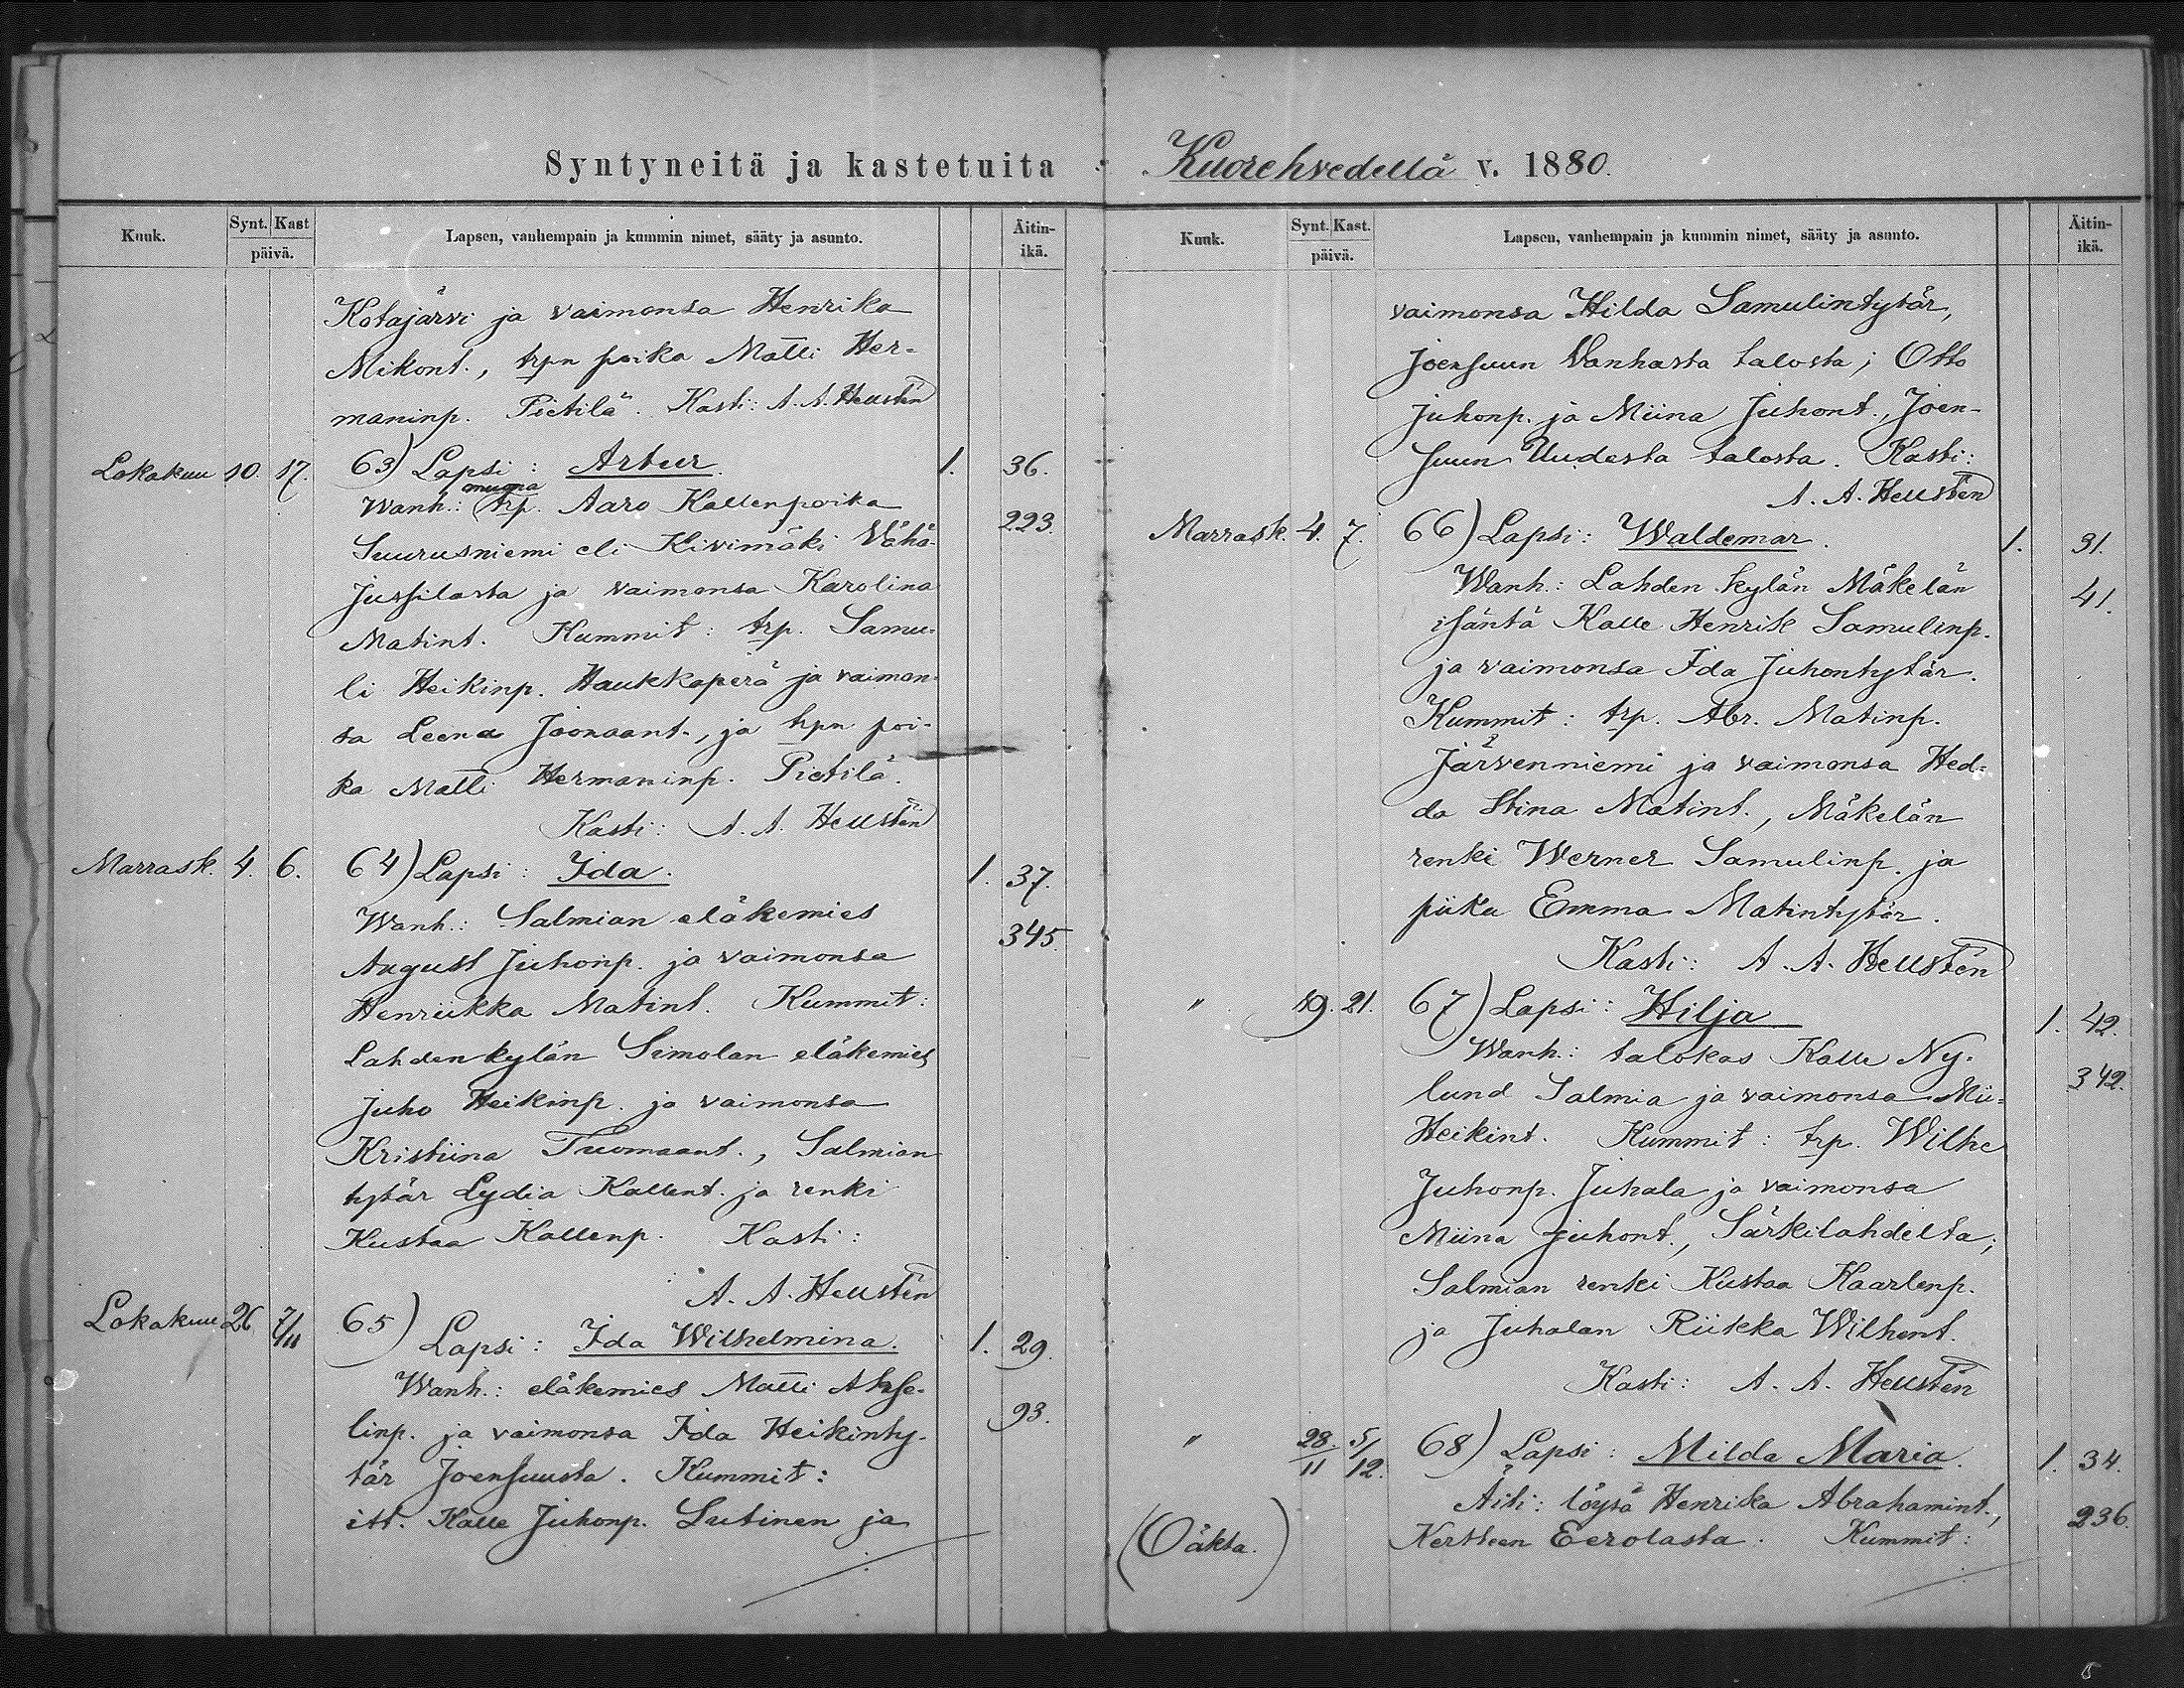 Syntyneitä ja kastetuita
Kuuk. Synt. Kast päivä. Lapsen, vanhempain ja kummin nimet, sääty ja asunto. Äitin-ikä.
Kotajärvi ja vaimonsa Henrika
Mikont., trpn poika Matti Her-
maninp. Pietilä. Kasti: A. A. Hellstén
Lokakuu 10. 17. 63) Lapsi: Artur. 1. 36.
muona
Wanh.: trp. Aaro Kallenpoika 223.
Suurusniemi eli Kivimäki Vähä-
Jussilasta ja vaimonsa Karolina
Matint. Kummit: trp. Samu-
li Heikinp. Haukkaperä ja vaimon-
sa Leena Joonaant., ja trpn poi-
ka Matti Hermaninp. Pietilä.
Kasti: A. A. Hellstén
Marrask. 4. 6. 64) Lapsi: Ida. 1. 37.
Wanh.: Salmian eläkemies 345.
August Juhonp. ja vaimonsa
Henriikka Matint. Kummit:
Lahdenkylän Simolan eläkemies
Juho Heikinp. ja vaimonsa
Kristiina Tuomaant., Salmian
tytär Lydia Kallent. ja renki
Kustaa Kallenp. Kasti:
A. A. Hellstén
Lokakuu 26 7/11 65) Lapsi: Ida Wilhelmina. 1. 29.
Wanh.: eläkemies Matti Akse-
linp. ja vaimonsa Ida Heikinty- 93.
tär Joensuusta. Kummit:
itt. Kalle Juhonp. Lutinen ja
Kuorehvedellä v. 1880.
Kuuk. Synt. Kast. päivä. Lapsen, vanhempain ja kummin nimet, sääty ja asunto. Äitin-ikä.
vaimonsa Hilda Samulintytär,
Joensuun Vanhasta talosta; Otto
Juhonp. ja Miina Juhont., Joen-
suun Uudesta talosta. Kasti:
A. A. Hellstén
Marrask. 4. 7. 66) Lapsi: Waldemar. 1. 31.
Wanh.: Lahden kylän Mäkelän 41.
isäntä Kalle Henrik Samulinp.
ja vaimonsa Ida Juhontytär.
Kummit: trp. Abr. Matinp.
Järvenniemi ja vaimonsa Hed-
da Stina Matint., Mäkelän
renki Werner Samulinp. ja
piika Emma Matintytär.
Kasti: A. A. Hellstén
" 19. 21. 67) Lapsi: Hilja 1. 42.
Wanh.: talokas Kalle Ny- 342.
lund Salmia ja vaimonsa Mii-
Heikint. Kummit: trp. Wilhe
Juhonp. Juhala ja vaimonsa
Miina Juhont., Särkilahdelta;
Salmian renki Kustaa Kaarlenp.
ja Juhalan Riikka Wilhent.
Kasti: A. A. Hellstén
" 28./11 5/12. 68) Lapsi: Milda Maria. 1. 34.
Äiti: löysä Henrika Abrahamint., 236.
(Oäkta.) Kertteen Eerolasta. Kummit: